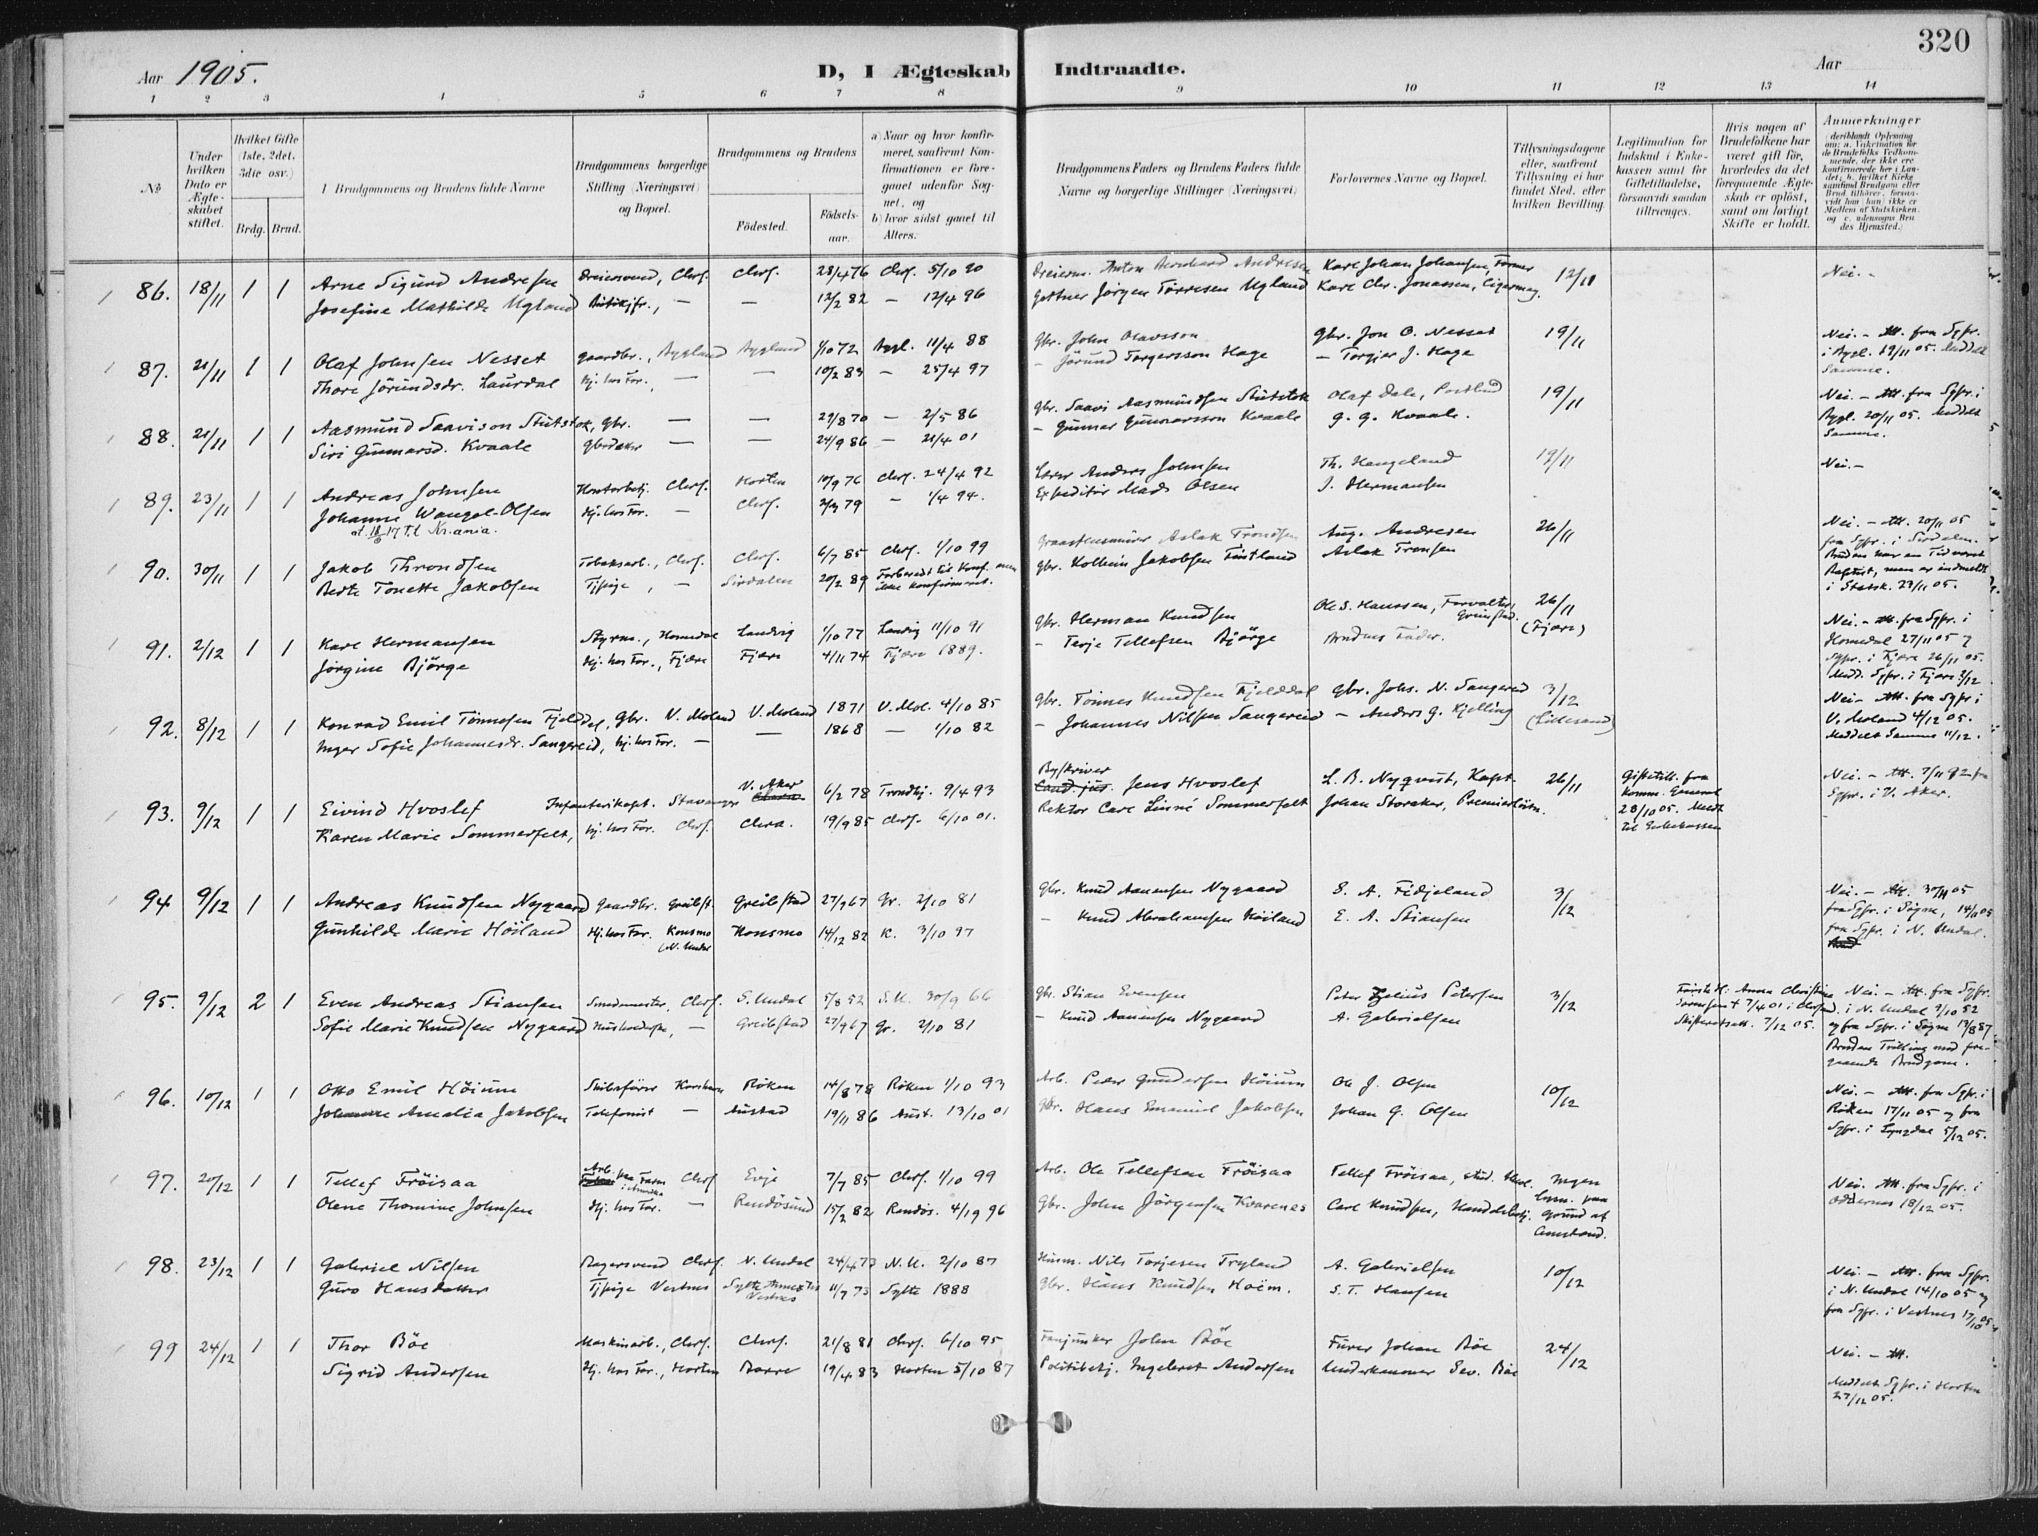 320
Aar 1905.
D, I Ægteskab Indtraadte.
Aar
1 2 3 4 5 6 7 8 9 10 11 12 13 14
№
Under hvilken Dato er Ægteskabet stiftet.
Hvilket Gifte (1ste, 2det, 3die osv.)
Brdg. Brud.
1 Brudgommens og Brudens fulde Navne
Brudgommens borgerlige Stilling (Næringsvei) og Bopæl.
Brudgommens og Brudens
Födested.
Födsels-aar.
a) Naar og hvor konfirmeret, saafremt Konfirmationen er foregaaet udenfor Sognet, og
b) hvor sidst gaaet til Alters.
Brudgommens Faders og Brudens Faders fulde Navne og borgerlige Stillinger (Næringsvei)
Forlovernes Navne og Bopæl.
Tillysningsdagene eller, saafremt Tillysning ei har fundet Sted, efter hvilken Bevilling.
Legitimation for Indskud i Enkekassen samt for Giftetilladelse, forsaavidt saadan tiltrænges.
Hvis nogen af Brudefolkene har været gift før, hvorledes da det foregaaende Ægteskab er oplöst, samt om lovligt Skifte er holdt.
Anmærkninger
86. 18/11 1 1 Arne Sigurd Andresen Dreiersvend, Chrs. Chrs. 28/4 76 Chrs. 5/10 90 Dreierm. Anton Bernhard Andresen Karl Johan Johansen, Former 12/11 Nei.-
Josefine Mathilde Ugland — — 12/2 82 — 12/4 96 Gartner Jörgen Törresen Ugland Karl Chr. Jonassen, Cigarmag.
87. 21/11 1 1 Olaf Johnsen Nesset gaardbr., Bygland Bygland 1/10 72 Bygl. 11/4 88 Gbr. John Olavsson Gbr. Jon O. Nesset 19/11 Nei. - Att. fra Sgpr.
Thore Jörundsdr. Laurdal Hj. hos For., — — 10/2 83 — 25/4 97 — Jörund Torgersson Hage — Torgjer J. Hage i Bygl. 19/11 05. Meddelt Samme.
88. 21/11 1 1 Aasmund Saavison Stutstok, gbr. — — 29/8 70 — 2/5 86 gbr. Saavi Aasmundsen Stutstok Olaf Dale, Postbud 19/11 Nei. - Att. fra Sgpr. i
Siri Gunnarsd. Kvaale — — 24/9 86 — 21/4 01 — Gunnar Gunnarsson Kvaale G. G. Kvaale. Bygl. 20/11 05. Meddelt Samme.
89. 23/11 1 1 Andreas Johnsen Kontorbetj. Chrs. Horten 10/9 76 Chrs. 24/4 92 Lærer Anders Johnsen Th. Haugeland 19/11 Nei.-
Johanne Wangel-Olsen Hj. hos For. — Chrs. 79 — 1/4 94. Expeditör Mads Olsen J. Hermansen
90. 30/11 1 1 Jakob Throndsen Tobaksarb., Chrs. Chrs. 6/7 85 Chrs. 1/10 99 Aslak Trondsen Aug. Andresen 26/11 Nei. - Att. 20/11 05
Berte Tonette Jakobsen Tjpige, — Sirdalen 20/2 89 Forberedt til Konf. men ikke konfirmeret. gbr. Kolbein Jakobsen Tæstland Aslak Tronsen fra Sgpr. i Sirdalen.
Bruden har en Tid været Baptist, men er indmeldt i Statsk. 23/11 05.
91. 2/12 1 1 Karl Hermansen Styrm., Homedal Landvig 1/10 77 Landvig 11/10 91 gbr. Herman Knudsen Ole S. Hanssen, Forvalter, Grimstad. 26/11 (Fjære) Nei. - Att. fra Sgpr. i
Jörgine Bjørge Hj. hos For., Fjære Fjære 4/11 74 Fjære 1889. — Terje Tellefsen Bjørge Brudens Fader. Homedal 27/11 05 og
Sgpr. i Fjære 26/11 05.
Medd. Sgpr. i Fjære 2/12
92. 8/12 1 1 Konrad Emil Tönnesen Fjeldal, Gbr. V. Moland V. Moland 1871 V. Mol. 4/10 85 gbr. Tönnes Knudsen Fjelddal gbr. Johs. N. Sangereid 3/12 Nei - Att. fra Sgpr. i
Inger Sofie Johannesdr. Sangereid, Hj. hos For. — — 1868 — 1/10 82 — Johannes Nilsen Sangereid — Anders G. Kjelling (Lillesand) V. Moland 4/12 05.
Meddelt Samme 11/12.
93. 9/12 1 1 Eivind Hvoslef Infanterikapt. Stavanger V. Aker 6/2 78 Trondhj. 9/4 93 Byskriver Jens Hvoslef L. B. Nyqvist, Kapt. 26/11 Giftetill. fra Komm. General 28/10 05. Nei. - Att. 7/11 92 fra
Karen Marie Sommerfelt, Hj. hos For. Chrs. Chra. 19/9 85 Chrs. 6/10 01. Rektor Carl Linné Sommerfelt Johan Storeker, Premierløitn. til Enkekassen Sgpr. i V. Aker.
94. 9/12 1 1 Andreas Knudsen Nygaard Gaardbr. Greibst. Greibstad 27/9 67 Gr. 2/10 81 gbr. Knud Aanensen Nygaard S. A. Fidjeland 3/12 Nei. - Att. 30/11 05
Gunhilde Marie Höiland Hj. hos For. Konsmo (N. Undal Konsmo 14/12 82 K. 3/10 97 — Knud Abrahamsen Höiland E. A. Stiansen fra Sgpr. i Søgne, 14/11 05
fra Sgpr. i N. Undal.
95. 9/12 2 1 Even Andreas Stiansen Smedmester, Chrs. S. Undal 5/8 52 S. U. 30/9 66 gbr. Stian Evensen Peter Zelius Petersen 3/12 Første H. Anna Christine Sørensen † 7/4 01 i Chrsand. Skifteretsatt. 7/12 05. Nei. - Att. fra Sgpr.
Sofie Marie Knudsen Nygaard — Greibstad 27/9 67 Gr. 2/10 81 — Knud Aanensen Nygaard A. Gabrielsen i N. Undal 9/10 52
og fra Sgpr. i Søgne 13/8 87.
Bruden Tvilling med foregaaende Brudgom.
96. 10/12 1 1 Otto Emil Höium Skibsförer Korshavn Röken 14/8 78 Röken 1/10 93 Arb. Peder Gundersen Höium Ole J. Olsen 10/12 Nei. - Att. fra Sgpr. i
Johanne Amalia Jakobsen Telefonist — Austad 19/11 86 Aust. 13/10 01 gbr. Hans Emanuel Jakobsen Johan G. Olsen Röken 17/11 05 og fra
Sgpr. i Lyngdal 5/12 05.
97. 20/12 1 1 Tellef Fröisaa Arb. paa Farm i Amerika Chrs Evje 7/7 85 Chrs. 1/10 99 Arb. Ole Tellefsen Fröisaa Tellef Fröisaa, stud. theol. Ingen Lysn. paa Grund af Omstænd. Nei. Att. fra Sgpr. i
Olene Thomine Johnsen Hj. hos For. — Randösund 15/2 82 Randøs. 4/10 96 Gbr. John Jörgensen Kvarenes Carl Knudsen, Handelsbetj. Oddernes 18/12 05.
98. 23/12 1 1 Gabriel Nilsen Bagersvend Chrs. N. Undal 24/4 73 N. U. 2/10 87 Husm. Nils Torjesen Tryland A. Gabrielsen 10/12 Nei. - Att. fra Sgpr.
Guro Hansdatter Tjpige Vestnes Sylte Annex til Vestnes 11/7 73 Sylte 1888 Gbr. Hans Knudsen Hoem. S. T. Hansen i N. Undal 14/10 05 og
fra Sgpr. i Vestnes 17/10 05
99 24/12 1 1 Thor Böe Maskinarb., Chrs. Chrs. 21/8 81 Chrs. 6/10 95 Fanjunker John Böe Furer Johan Böe 24/12 Nei. - Att.
Sigrid Andersen Hj. hos For., Horten Borre 19/4 83 Horten 5/10 87 Politibetj. Ingebret Andersen Underkanoner Sev. Böe Meddelt Sgpr. i Horten
27/12 05.